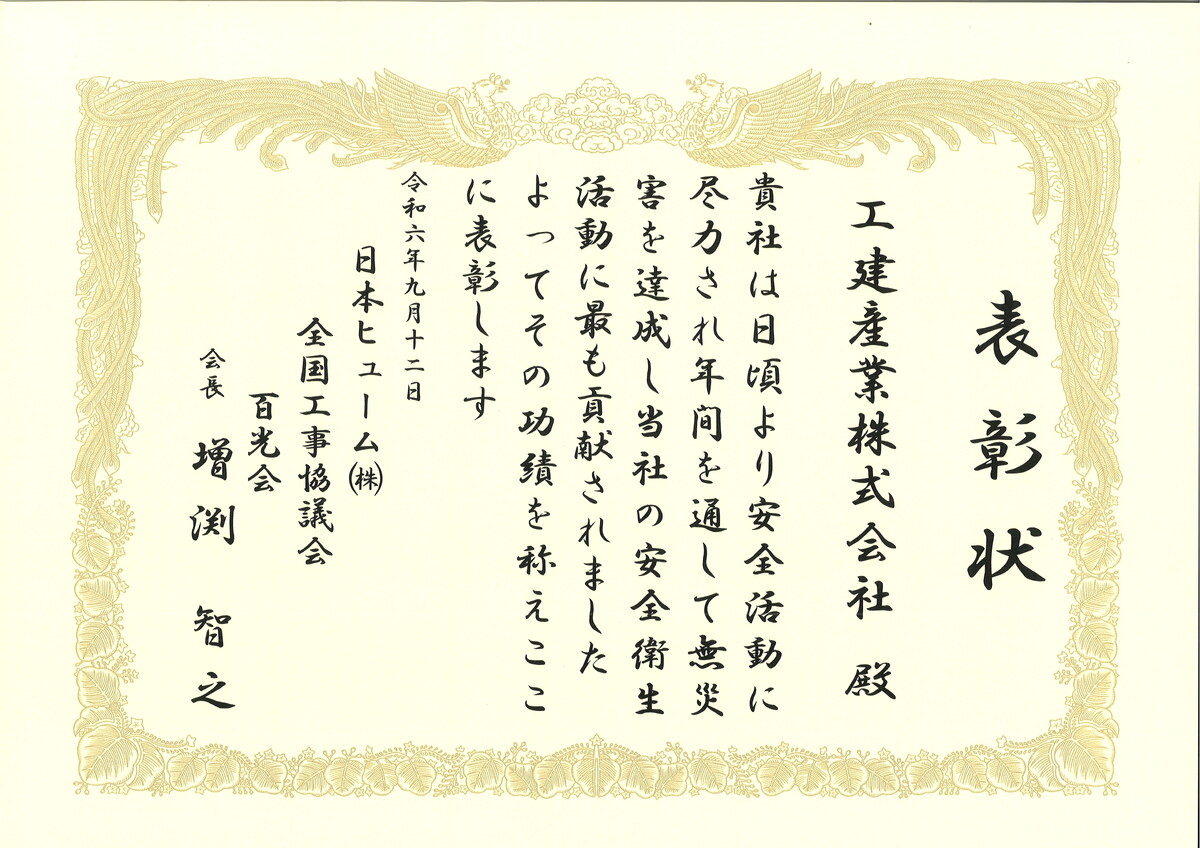 表彰状
工建産業株式会社 殿
貴社は日頃より安全活動に
尽力され年間を通して無災
害を達成し当社の安全衛生
活動に最も貢献されました
よってその功績を称えここ
に表彰します
令和六年九月十二日
日本ヒューム㈱
全国工事協議会
百光会
会長 増渕 智之